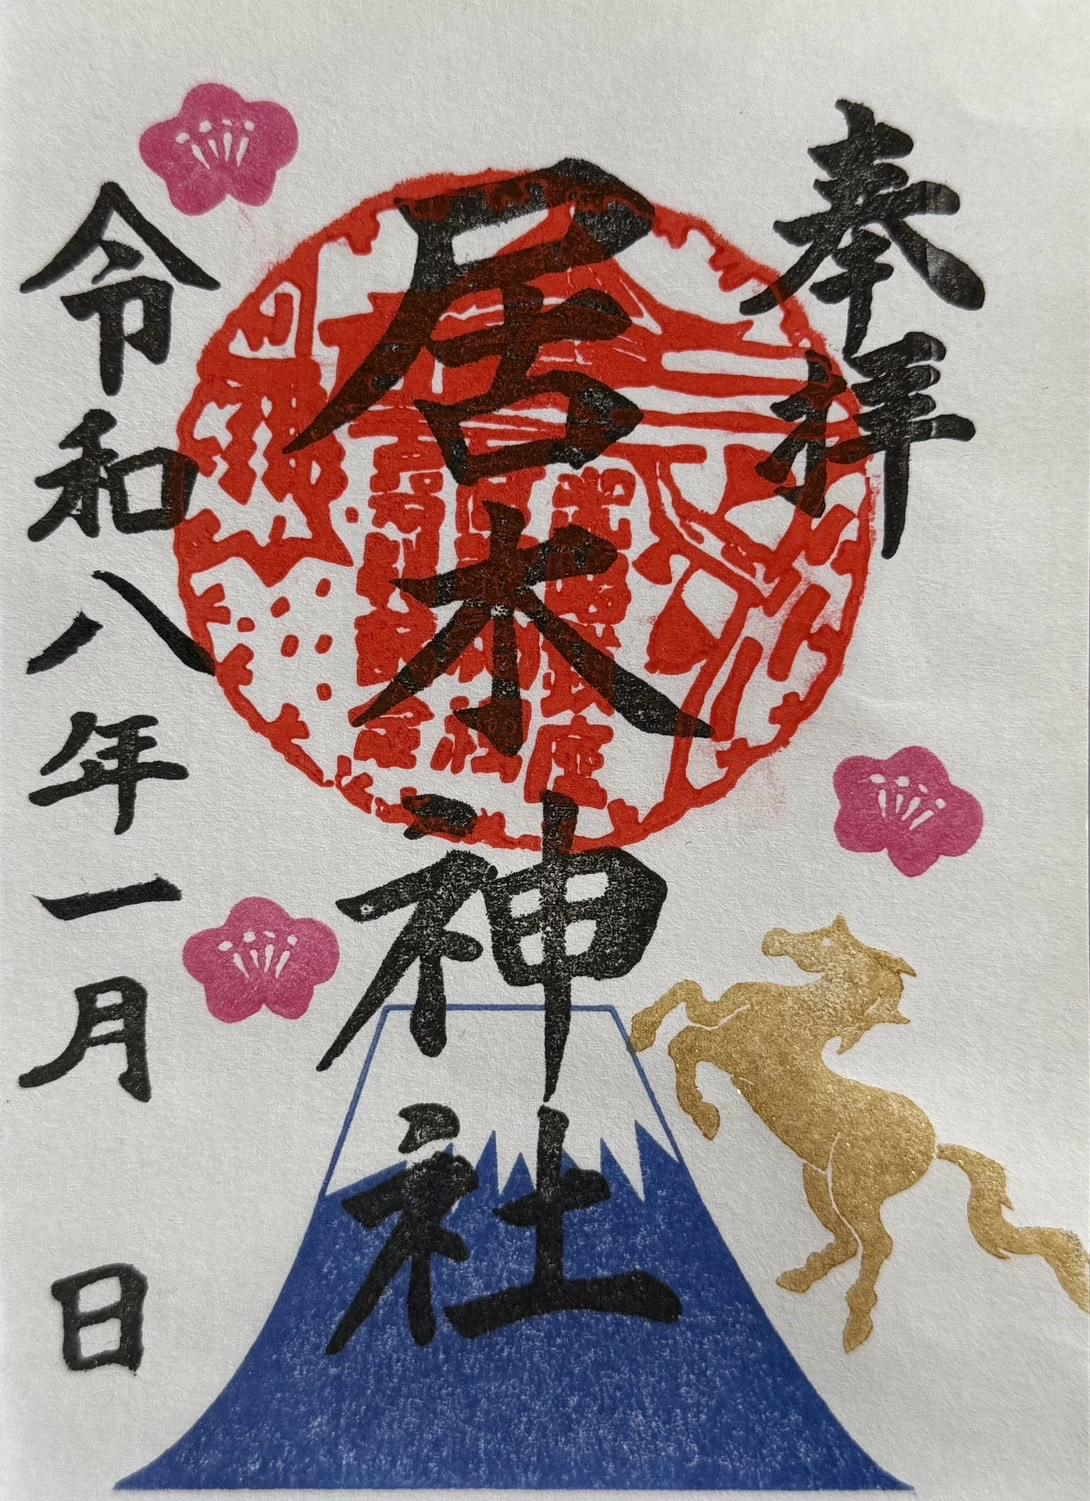 奉拝
居木神社
令和八年一月 日